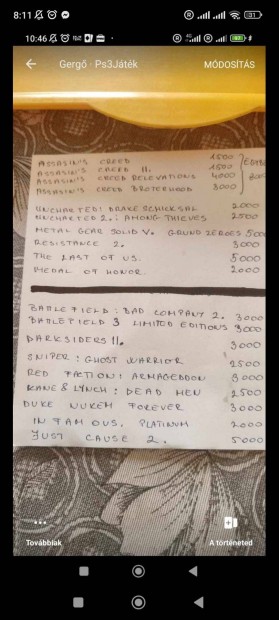 8:11
31
10:46
4G
Gergő · Ps3Játék
MÓDOSÍTÁS
ASSASIN'S CREED 1500
ASSASIN'S CREED II. 1500
ASSASIN'S CREED RELEVATIONS 4000
ASSASIN'S CREED BROTERHOOD 3000
UNCHARTED: DRAKE SCHICKSAL 2000
UNCHARTED 2.: AMONG THIEVES 2500
METAL GEAR SOLID V. GRUND ZEROES 5000
RESISTANCE 2. 3000
THE LAST OF US. 5000
MEDAL OF HONOR. 2000
BATTLEFIELD: BAD COMPANY 2. 3000
BATTLEFIELD 3 LIMITED EDITIONS 3000
DARKSIDERS II. 3000
SNIPER: GHOST WARRIOR 2500
RED FACTION: ARMAGEDDON 3000
KANE & LYNCH: DEAD MEN 2500
DUKE NUKEM FOREVER 3000
IN FAMOUS. PLATINUM 2000
JUST CAUSE 2. 5000
Továbbiak
A történeted